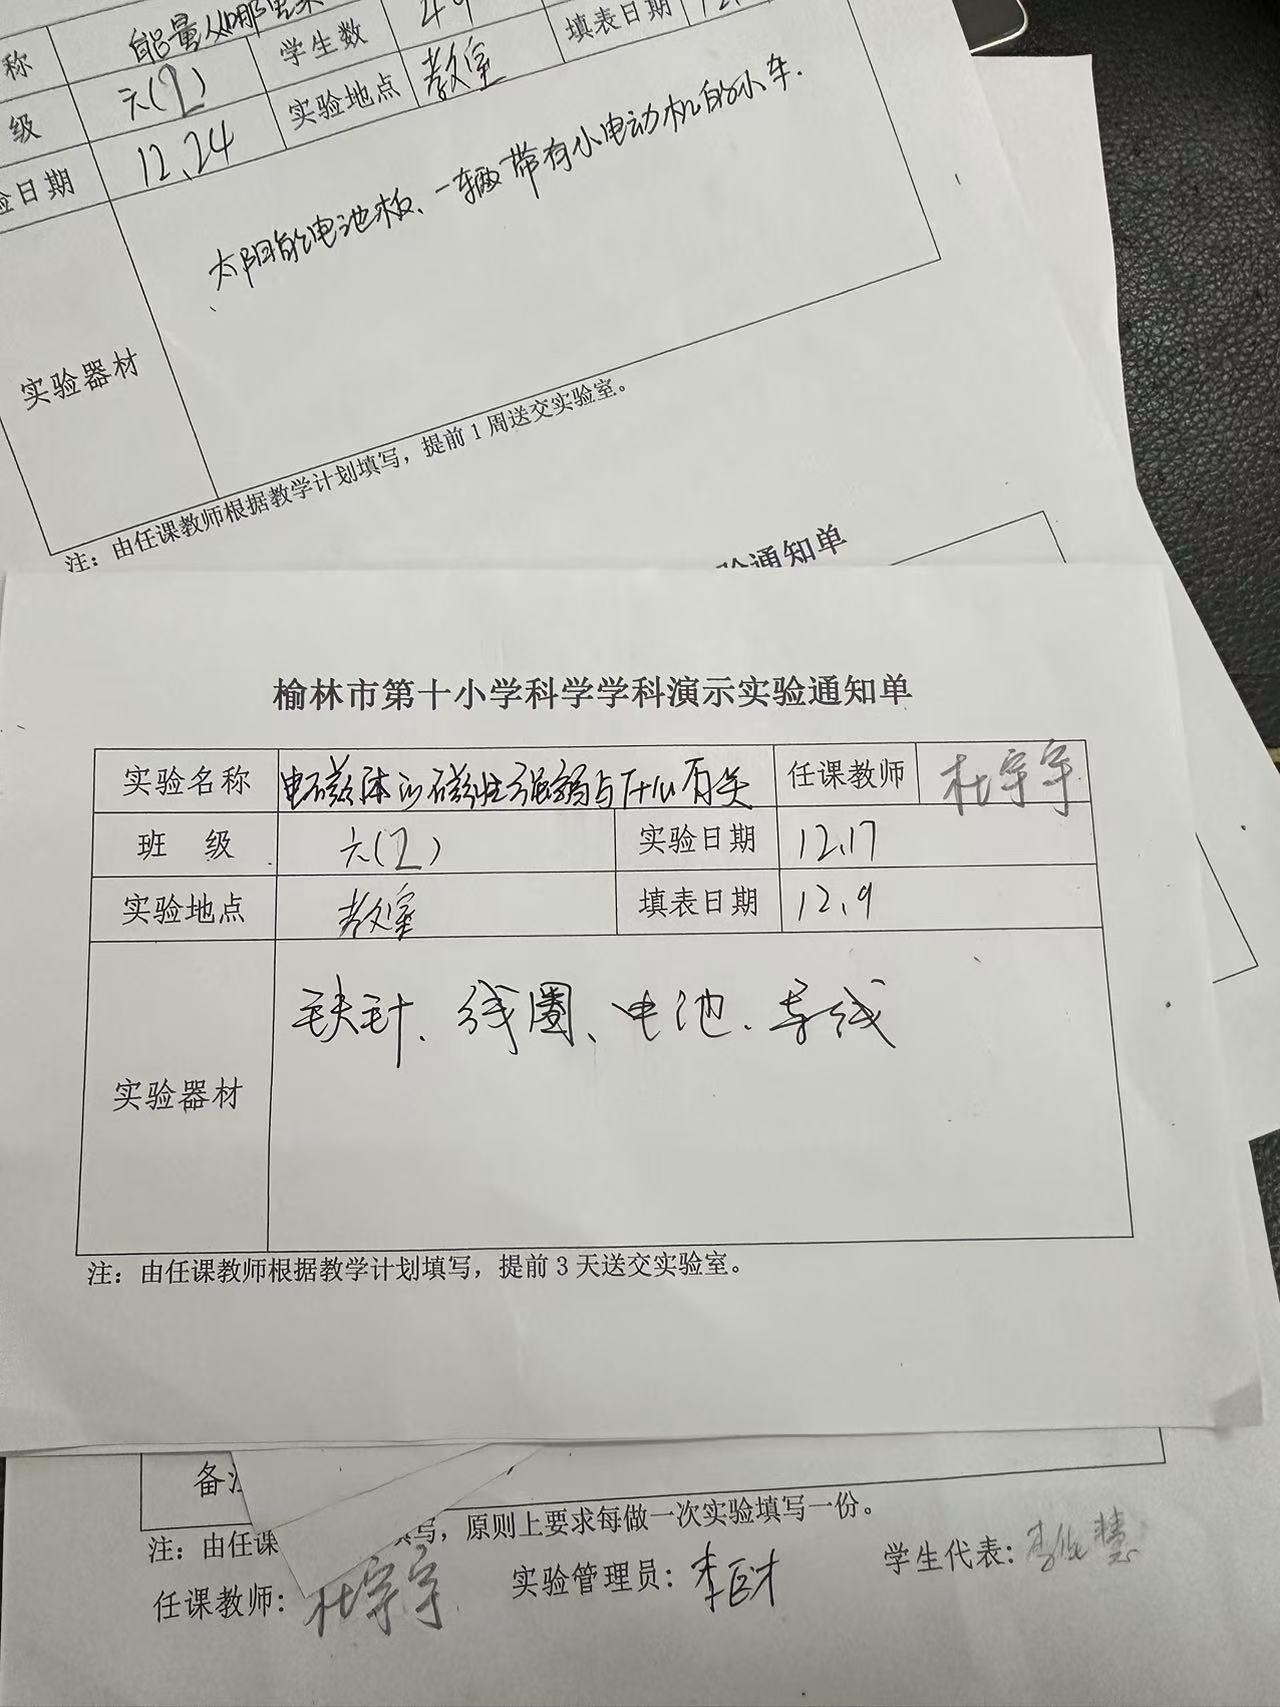 称 能量从哪里来 学生数 49 填表日期 12.
级 六(2) 实验地点 教室
验日期 12.24
实验器材 太阳能电池板、一辆带有小电动机的小车.
注：由任课教师根据教学计划填写，提前1周送交实验室。
验通知单
榆林市第十小学科学学科演示实验通知单
实验名称 电磁体的磁性强弱与什么有关 任课教师 杜宇宇
班 级 六(2) 实验日期 12.17
实验地点 教室 填表日期 12.9
实验器材 铁钉、线圈、电池、导线
注：由任课教师根据教学计划填写，提前3天送交实验室。
备注
注：由任课 填写，原则上要求每做一次实验填写一份。
任课教师：杜宇宇 实验管理员：李 学生代表：李